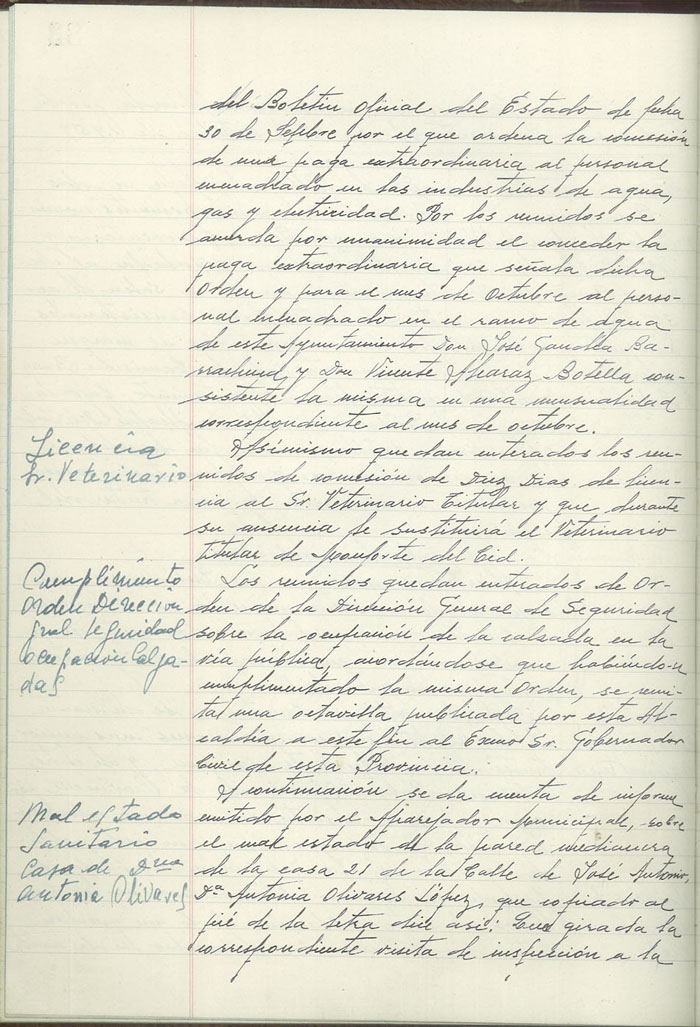 del Boletin Oficial del Estado de fecha
30 de Sepbre por el que ordena la concesión
de una paga extraordinaria al personal
encuadrado en las industrias de agua,
gas y electricidad. Por los reunidos se
acuerda por unanimidad el conceder la
paga extraordinaria que señala dicha
Orden y para el mes de Octubre al perso-
nal encuadrado en el ramo de agua
de este Ayuntamiento Don José Gandea Ba-
rrachina y Don Vicente Alcaraz Botella con-
sistente la misma en una mensualidad
correspondiente al mes de octubre.
Licencia
Sr. Veterinario
Asimismo quedan enterados los reu-
nidos de concesión de Diez Dias de licen-
cia al Sr. Veterinario Titular y que durante
su ausencia le sustituirá el Veterinario
titular de Monforte del Cid.
Cumplimiento
Orden Dirección
gral seguridad
ocupación Calza-
das
Los reunidos quedan enterados de Or-
den de la Dirección General de Seguridad
sobre la ocupación de la calzada en la
vía pública, acordándose que habiéndose
cumplimentado la misma Orden, se remi-
ta una octavilla publicada por esta Al-
caldía a este fin al Excmo Sr. Gobernador
Civil de esta Provincia.
Mal estado
Sanitario
Casa de Dña
Antonia Olivares
A continuación se da cuenta de informe
emitido por el Aparejador Municipal, sobre
el mal estado de la pared medianera
de la casa 21 de la Calle de José Antonio,
Dª Antonia Olivares López, que copiado al
pié de la letra dice asi: Que girada la
correspondiente visita de inspección a la